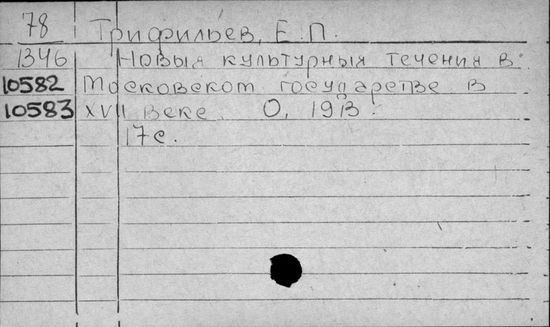 78 Трифильев, Е.П.
1346 Новыя культурныя течения в
10582 Московском государстве в
10583 XVII веке. О, 1913.
17с.